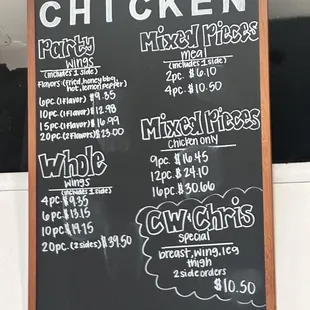 CHICKEN
Party
wings
(includes 1 side)
Flavors: (fried, honey bbq,
hot, lemon pepper)
6pc (1 Flavor) $9.35
10pc (1 Flavor) $12.98
15pc (1 Flavor) $16.99
20pc (2 Flavors) $23.00
Whole
wings
(includes 1 side)
4pc $9.35
6pc $13.15
10pc $19.75
20pc (2 sides) $39.50
Mixed Pieces
meal
(includes 1 side)
2pc. $6.10
4pc. $10.50
Mixed Pieces
Chicken only
9pc. $16.45
12pc. $24.10
16pc. $30.66
CW Chris
special
breast, wing, leg
thigh
2 side orders
$10.50